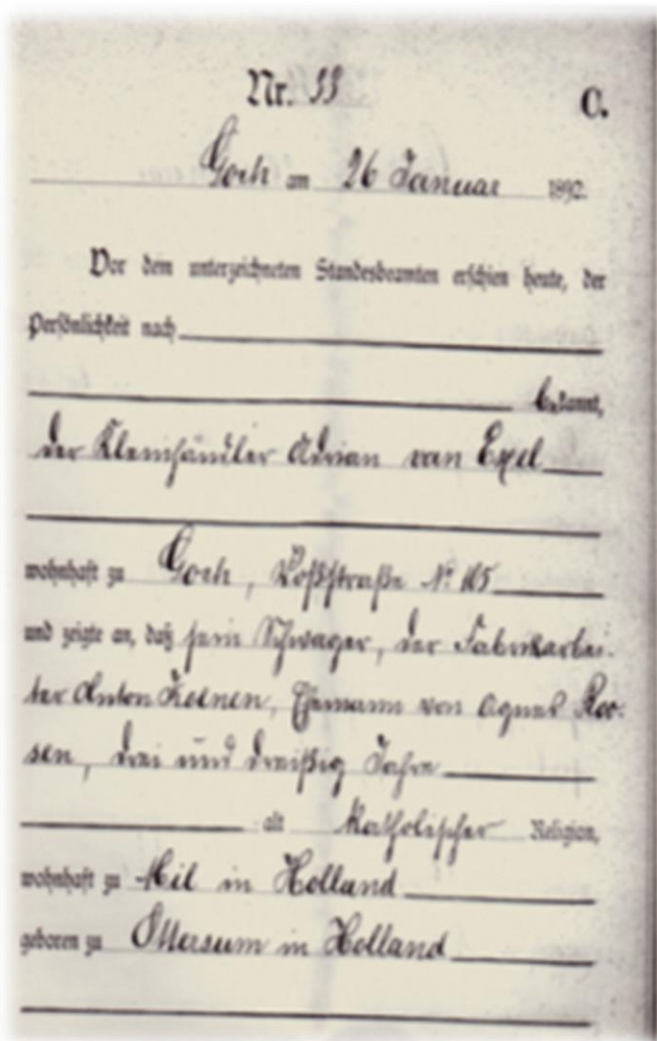 Nr. 33 C.
Goch am 26 Januar 1892.
Vor dem unterzeichneten Standesbeamten erschien heute, der
Persönlichkeit nach
bekannt,
der Kleinhändler Adrian van Exel
wohnhaft zu Goch, Voßstraße No 115
und zeigte an, daß sein Schwager, der Fabrikarbei-
ter Anton Koenen, Ehemann von Agnes Roo-
sen, drei und dreißig Jahre
alt katholischer Religion,
wohnhaft zu Mil in Holland
geboren zu Ottersum in Holland